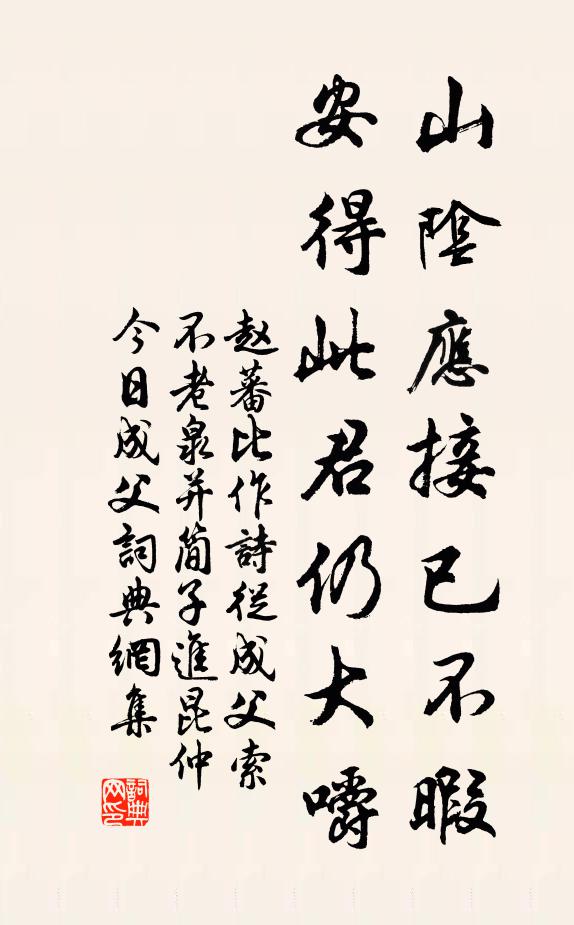 山陰應接已不暇
安得此君仍大嚼
赵蕃比作詩從成父索
不老泉并简子進昆仲
今日成父詞典網集
詞典网印